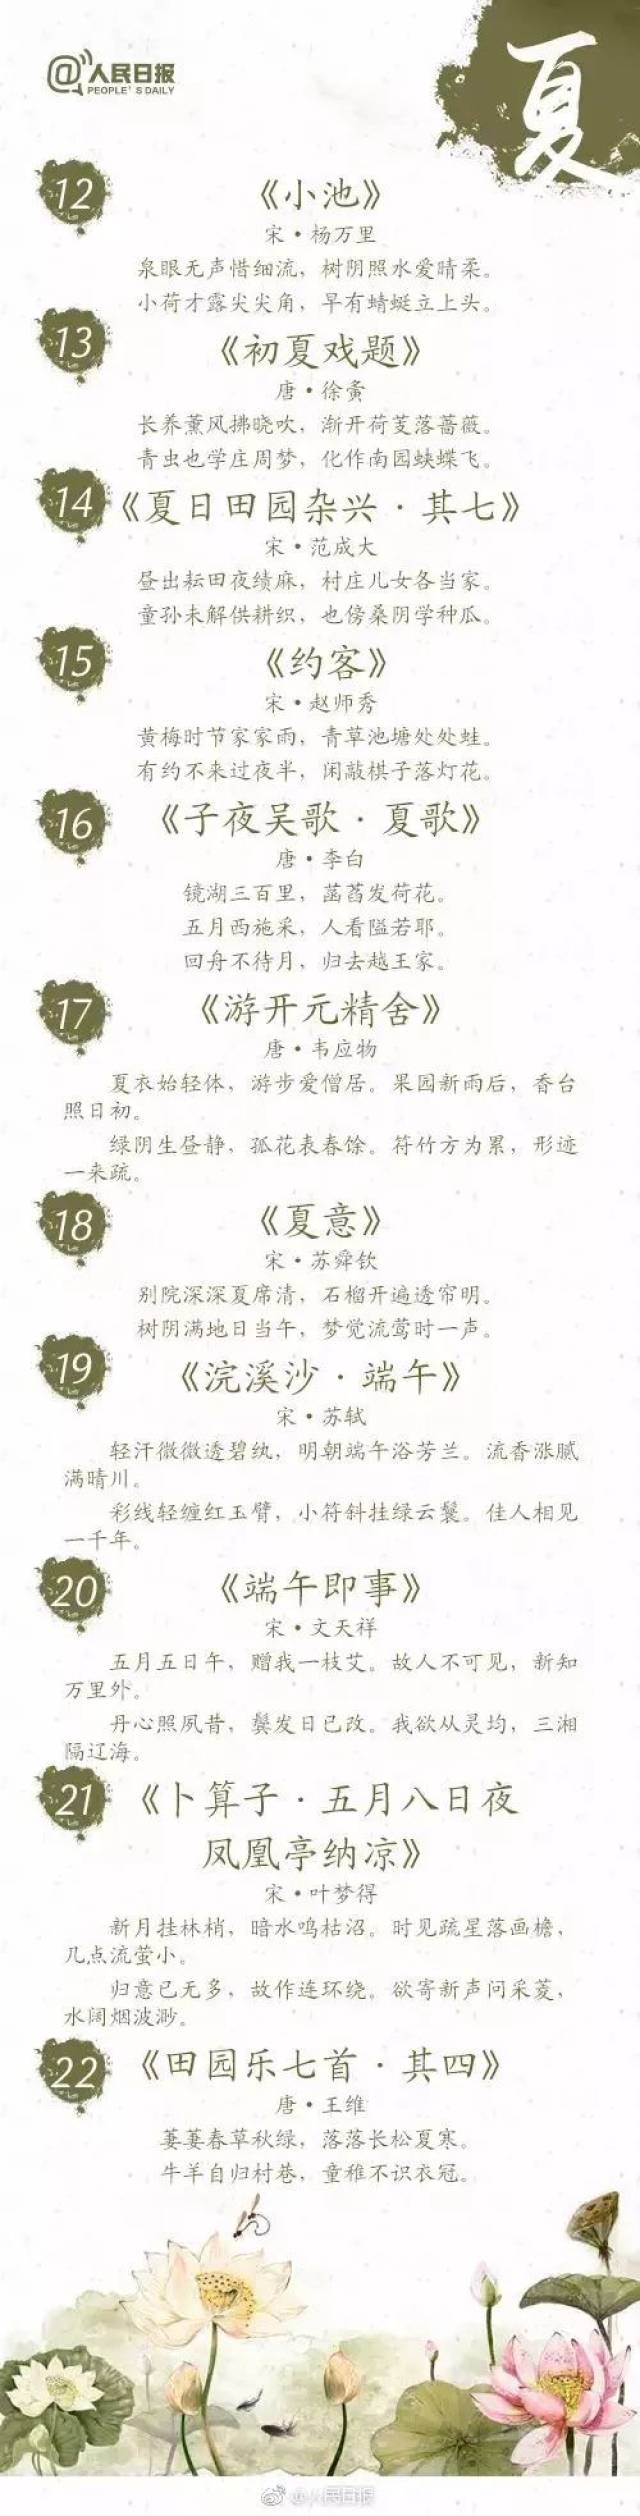 @人民日报
PEOPLE'S DAILY
夏
12
《小池》
宋·杨万里
泉眼无声惜细流，树阴照水爱晴柔。
小荷才露尖尖角，早有蜻蜓立上头。
13
《初夏戏题》
唐·徐夤
长养薰风拂晓吹，渐开荷芰落蔷薇。
青虫也学庄周梦，化作南园蛱蝶飞。
14
《夏日田园杂兴·其七》
宋·范成大
昼出耘田夜绩麻，村庄儿女各当家。
童孙未解供耕织，也傍桑阴学种瓜。
15
《约客》
宋·赵师秀
黄梅时节家家雨，青草池塘处处蛙。
有约不来过夜半，闲敲棋子落灯花。
16
《子夜吴歌·夏歌》
唐·李白
镜湖三百里，菡萏发荷花。
五月西施采，人看隘若耶。
回舟不待月，归去越王家。
17
《游开元精舍》
唐·韦应物
夏衣始轻体，游步爱僧居。果园新雨后，香台
照日初。
绿阴生昼静，孤花表春馀。符竹方为累，形迹
一来疏。
18
《夏意》
宋·苏舜钦
别院深深夏席清，石榴开遍透帘明。
树阴满地日当午，梦觉流莺时一声。
19
《浣溪沙·端午》
宋·苏轼
轻汗微微透碧纨，明朝端午浴芳兰。流香涨腻
满晴川。
彩线轻缠红玉臂，小符斜挂绿云鬟。佳人相见
一千年。
20
《端午即事》
宋·文天祥
五月五日午，赠我一枝艾。故人不可见，新知
万里外。
丹心照夙昔，鬓发日已改。我欲从灵均，三湘
隔辽海。
21
《卜算子·五月八日夜
凤凰亭纳凉》
宋·叶梦得
新月挂林梢，暗水鸣枯沼。时见疏星落画檐，
几点流萤小。
归意已无多，故作连环绕。欲寄新声问采菱，
水阔烟波渺。
22
《田园乐七首·其四》
唐·王维
萋萋春草秋绿，落落长松夏寒。
牛羊自归村巷，童稚不识衣冠。
@人民日报